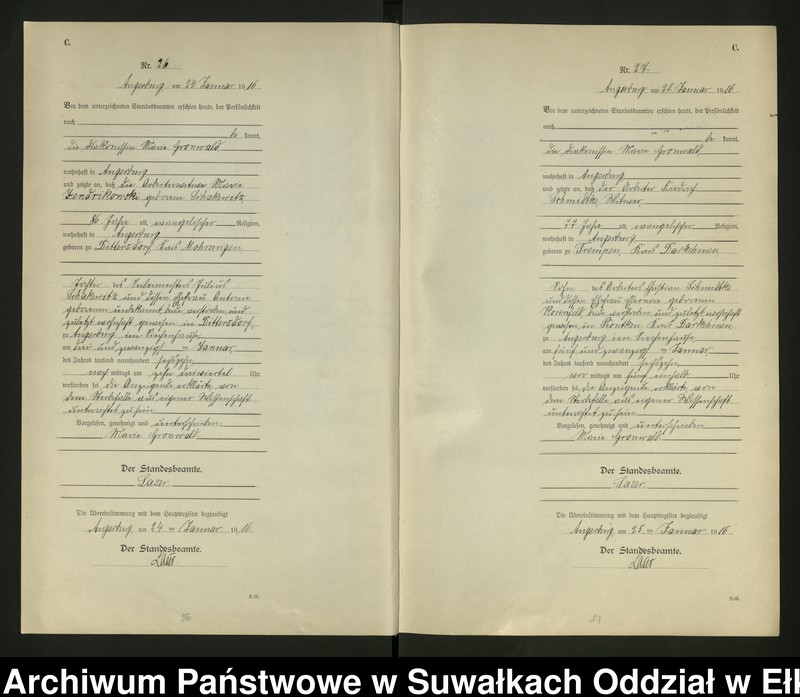 C.
Nr. 26
Angerburg am 24 Januar 1916.
Vor dem unterzeichneten Standesbeamten erschien heute, der Persönlichkeit
nach
be kannt,
die Diakonissin Marie Gronwald
wohnhaft in Angerburg
und zeigte an, daß die Arbeiterwitwe Marie
geborene Schakewitz
86 Jahre alt, evangelischer Religion,
wohnhaft in Angerburg
geboren zu Dittersdorf, Kreis Mohrungen,
Tochter des Julius
Schakewitz und dessen Ehefrau
geborenen unbekannt, beide verstorben und
zuletzt wohnhaft gewesen in Dittersdorf,
zu Angerburg im Siechenhause
am drei und zwanzigsten Januar
des Jahres tausend neunhundert sechszehn
nach mittags um zehn dreiviertel Uhr
verstorben sei. Die Anzeigende erklärte, von
dem Sterbefalle aus eigener Wissenschaft
unterrichtet zu sein.
Vorgelesen, genehmigt und unterschrieben
Marie Gronwald.
Der Standesbeamte.
Laser.
Die Übereinstimmung mit dem Hauptregister beglaubigt
Angerburg, am 24 ten Januar 1916.
Der Standesbeamte.
Laser
26
C.
Nr. 27.
Angerburg am 25 Januar 1916
Vor dem unterzeichneten Standesbeamten erschien heute, der Persönlichkeit
nach
be kannt,
die Diakonissin Marie Gronwald
wohnhaft in Angerburg
und zeigte an, daß der Arbeiter Friedrich
Schmidtke, Witwer
77 Jahre alt, evangelischer Religion,
wohnhaft in Angerburg
geboren zu Trempen, Kreis Darkehmen,
Sohn des Arbeiters Schmidtke
und dessen Ehefrau geborenen
beide verstorben und zuletzt wohnhaft
gewesen in Kreis Darkehmen
zu Angerburg im Siechenhause
am fünf und zwanzigsten Januar
des Jahres tausend neunhundert sechszehn
vor mittags um fünf einhalb Uhr
verstorben sei. Die Anzeigende erklärte, von
dem Sterbefalle aus eigener Wissenschaft
unterrichtet zu sein.
Vorgelesen, genehmigt und unterschrieben
Marie Gronwald.
Der Standesbeamte.
Laser.
Die Übereinstimmung mit dem Hauptregister beglaubigt
Angerburg am 25 ten Januar 1916.
Der Standesbeamte.
Laser
27
Archiwum Państwowe w Suwałkach Oddział w Eł